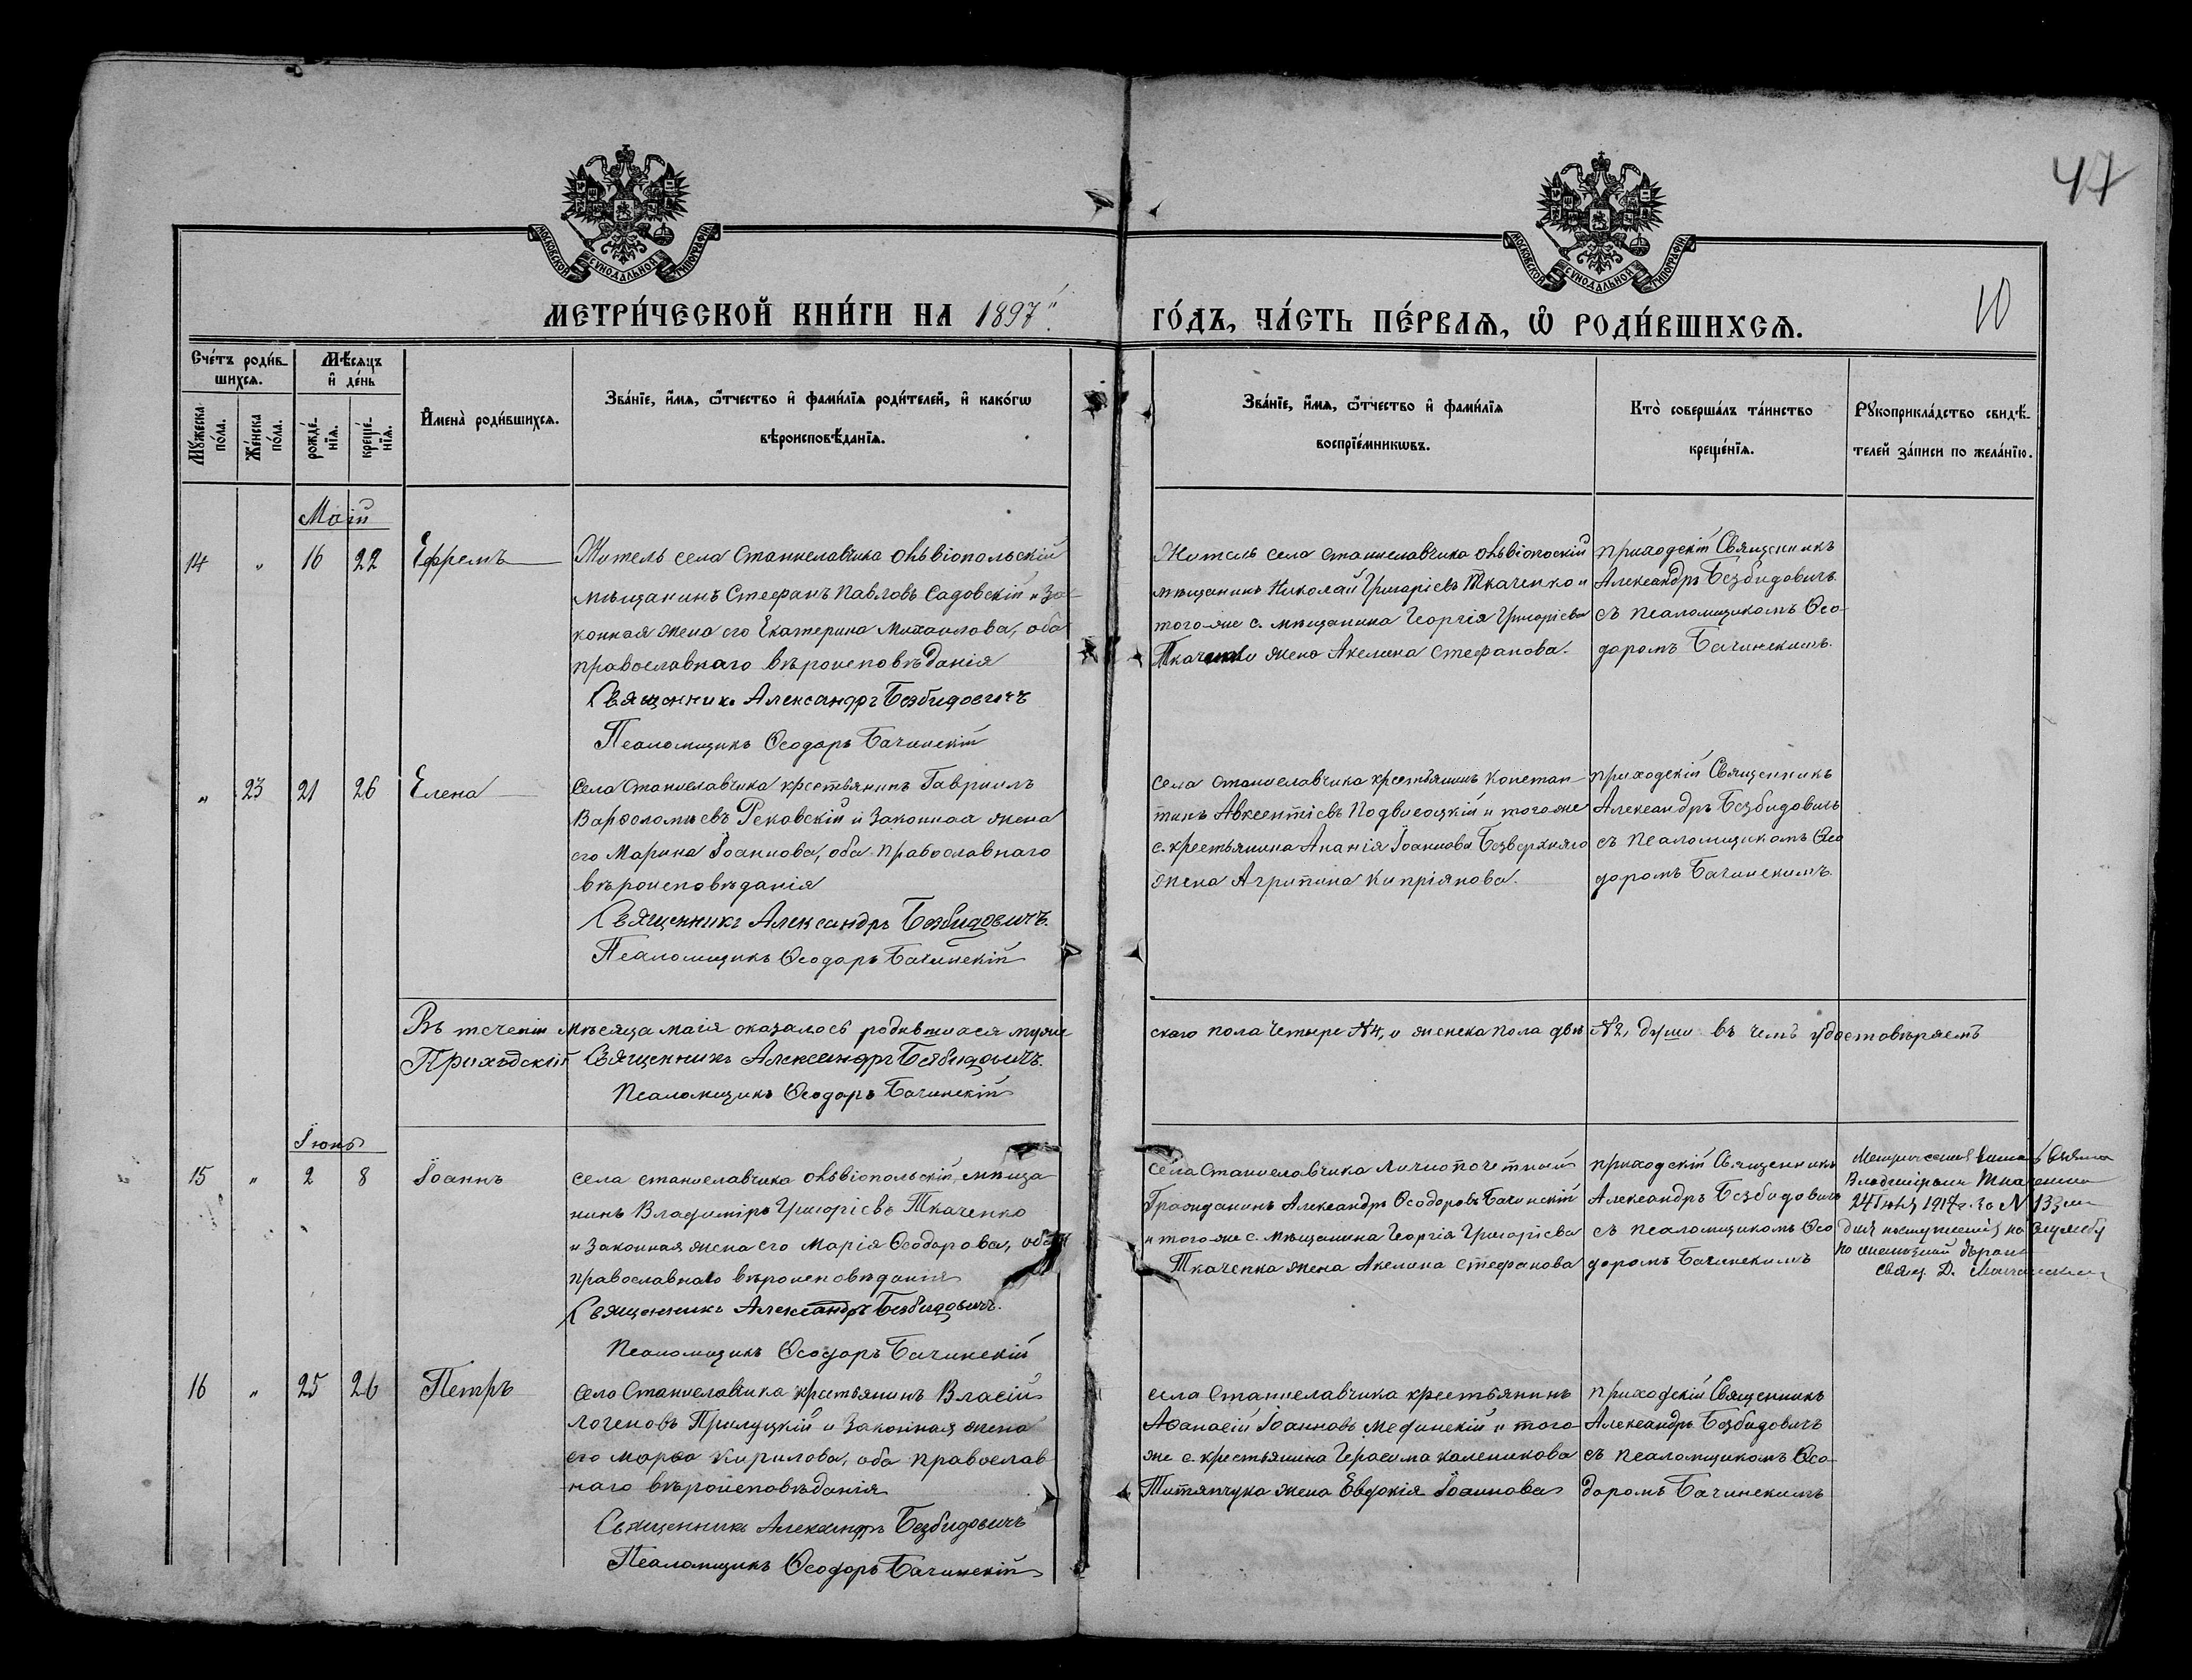 47
МОСКОВСКОЙ СѴНОДАЛЬНОЙ ТИПОГРАФІИ
МОСКОВСКОЙ СѴНОДАЛЬНОЙ ТИПОГРАФІИ
МЕТРИ́ЧЕСКОЙ КНИ́ГИ НА 1897
ГО́ДЪ, ЧА́СТЬ ПЕ́РВАѦ, Ѽ РОДИ́ВШИХСѦ.
10
Сче́тъ роди́вшихсѧ.
Мѣ́сѧцъ и҆ де́нь
Мꙋ́жеска по́ла.
Же́нска по́ла.
рожде́нїѧ.
креще́нїѧ.
И҆мена̀ роди́вшихсѧ.
Зва́нїе, и҆́мѧ, ѻ҆́тчество и҆ фами́лїѧ роди́телей, и҆ како́гѡ
вѣроисповѣ́данїѧ.
Зва́нїе, и҆́мѧ, ѻ҆́тчество и҆ фами́лїѧ
воспрїе́мникѡвъ.
Кто̀ соверша́лъ та́инство
креще́нїѧ.
Рꙋкоприкла́дство свидѣ́телей за́писи по жела́нїю.
Маій
14 " 16 22 Ефремъ
Житель села Станиславчика Ольвіопольскій
мѣщанинъ Стефанъ Павловъ Садовскій и за-
конная жена его Екатерина Михаилова, оба
православнаго вѣроисповѣданія
Священникъ Александръ Безбидовичъ
Псаломщикъ Ѳеодоръ Бачинскій
Житель села Станиславчика Ольвіопоскій
мѣщанинъ Николай Григоріевъ Ткаченко и
того же с. мѣщанина Георгія Григоріева
Ткаченко жена Акелина Стефанова.
приходскій Священникъ
Александръ Безбидовичъ
съ псаломщикомъ Ѳео-
доромъ Бачинскимъ.
" 23 21 26 Елена
Села Станиславчика крестьянинъ Гавриилъ
Варѳоломѣевъ Рековскій и законная жена
его Марина Іоаннова, оба православнаго
вѣроисповѣданія
Священникъ Александръ Безбидовичъ.
Псаломщикъ Ѳеодоръ Бачинскій
села Станиславчика крестьянинъ Констан-
тинъ Авксентіевъ Подвысоцкій и того же
с. крестьянина Ананія Іоаннова Безверхняго
жена Агрипина Кипріянова.
приходскій Священникъ
Александръ Безбидовичъ
съ псаломщикомъ Ѳео
доромъ Бачинскимъ.
Въ теченіи мѣсяца маія оказалось родившихся муже-
скаго пола четыре №4, и женска пола двѣ №2, души въ чемъ удостовѣряемъ
Приходскій Священникъ Александръ Безбидовичъ.
Псаломщикъ Ѳеодоръ Бачинскій
Іюнь
15 " 2 8 Іоаннъ
села Станиславчика Ольвіопольскій мѣща-
нинъ Владиміръ Григоріевъ Ткаченко
и законная жена его Марія Ѳеодорова, оба
православнаго вѣроисповѣданія
Священникъ Александръ Безбидовичъ.
Псаломщикъ Ѳеодоръ Бачинскій
села Станиславчика Лично почетный
Гражданинъ Александръ Ѳеодоровъ Бачинскій
и того же с. мѣщанина Георгія Григоріева
Ткаченка жена Акелина Стефанова
приходскій Священникъ
Александръ Безбидовичъ
съ псаломщикомъ Ѳео
доромъ Бачинскимъ
Метрическая
Владиміромъ Ткаченко
24 Іюня 1917 г. за N 13
для поступленія на службу
по
свящ. Д.
16 " 25 26 Петръ
села Станиславчика крестьянинъ Власій
Логеновъ Прилуцкій и законная жена
его Марѳа Кирилова, оба православ
наго вѣроисповѣданія
Священникъ Александръ Безбидовичъ
Псаломщикъ Ѳеодоръ Бачинскій
села Станиславчика крестьянинъ
Аѳанасій Іоанновъ Мединскій и того
же с. крестьянина Герасима Каленикова
Титянчука жена Евдокія Іоаннова
приходскій Священникъ
Александръ Безбидовичъ
съ псаломщикомъ Ѳео-
доромъ Бачинскимъ